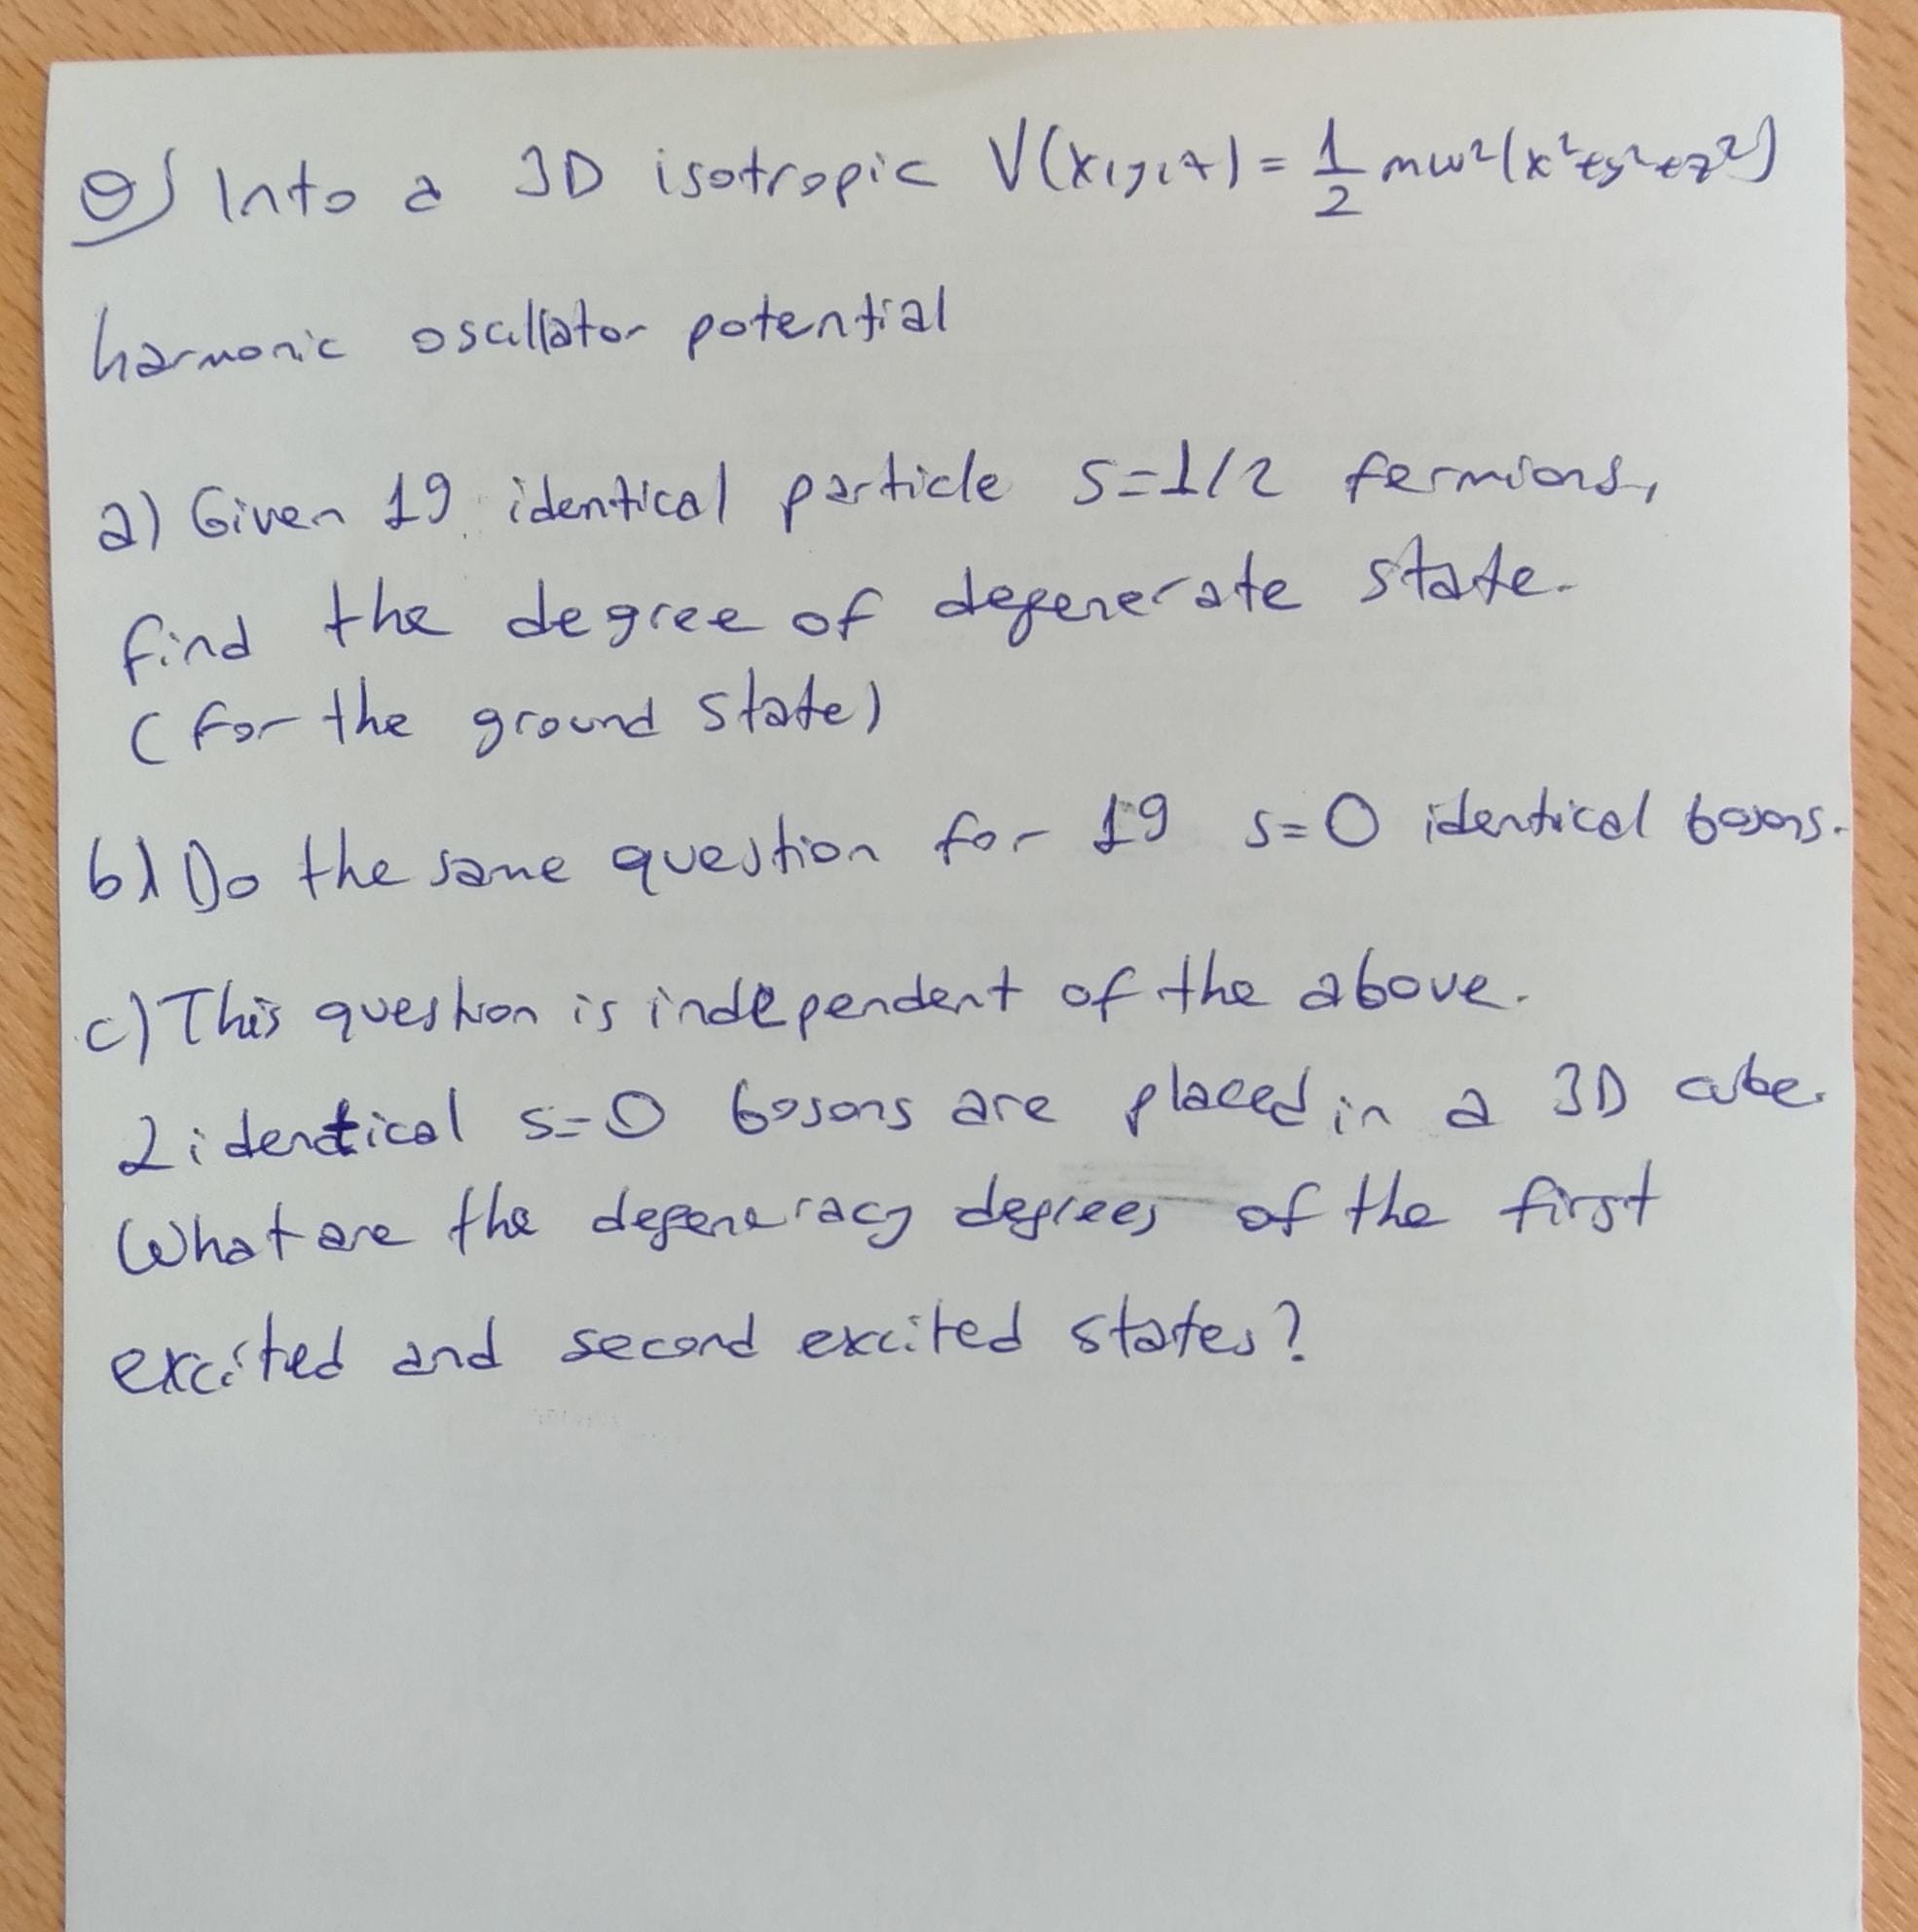 Q) Into a 3D isotropic V(x,y,z) = 1/2 mw²(x²+y²+z²)
harmonic oscillator potential
a) Given 19 identical particle s=1/2 fermions,
find the degree of degenerate state.
(for the ground state)
b) Do the same question for 19 s=0 identical bosons.
c) This question is independent of the above.
2 identical s=0 bosons are placed in a 3D cube.
What are the degeneracy degrees of the first
excited and second excited states?